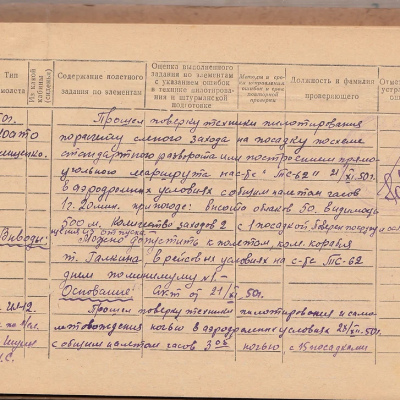 Тип
молета
Из какой
кабины
(сиденье)
Содержание полезного
задания по элементам
Оценка выполненного
задания по элементам
с указанием ошибок
в технике пилотирова-
ния и штурманской
подготовке
Методы и сро-
ки исправления
ошибок и срок
повторной
проверки
Должность и фамилия
проверяющего
Отмет
устра
0г. Прошел поверку техники пилотирования
по расчету слепого захода на посадку по схеме
стандартного разворота или построением прямо-
угольного маршрута на с-бе "ТС-62" 21/XI.50г.
в аэродромных условиях с общим налетом часов
1 г. 20 мин. при погоде: высота облаков 50, видимость
500 м. Количество заходов 2 с 1 посадкой.
Выводы: Можно допустить к полетам, ком. корабля
т. Галкина в рейсовых условиях на с-бе ТС-62
днем по минимуму №1 —
Основание: Акт от 21/XI.50г.
Прошел поверку техники пилотирования и само-
летовождения ночью в аэродромных условиях
с общим налетом часов 3 ночью с 15 посадками